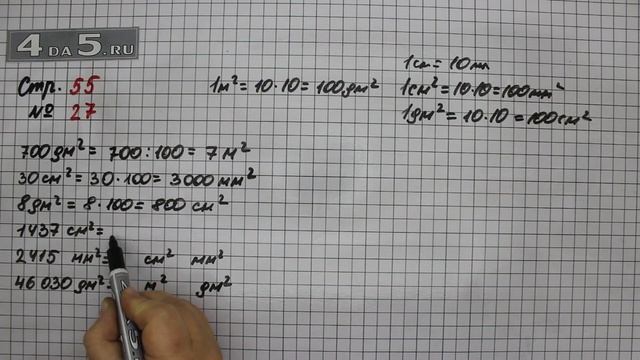 4DA5.RU
Стр. 55
№ 27
1м² = 10·10 = 100дм²
1см = 10мм
1см² = 10·10 = 100мм²
1дм² = 10·10 = 100см²
700дм² = 700:100 = 7м²
30см² = 30·100 = 3000мм²
8дм² = 8·100 = 800 см²
1437 см² =
2415 мм² = см² мм²
46030дм² = м² дм²